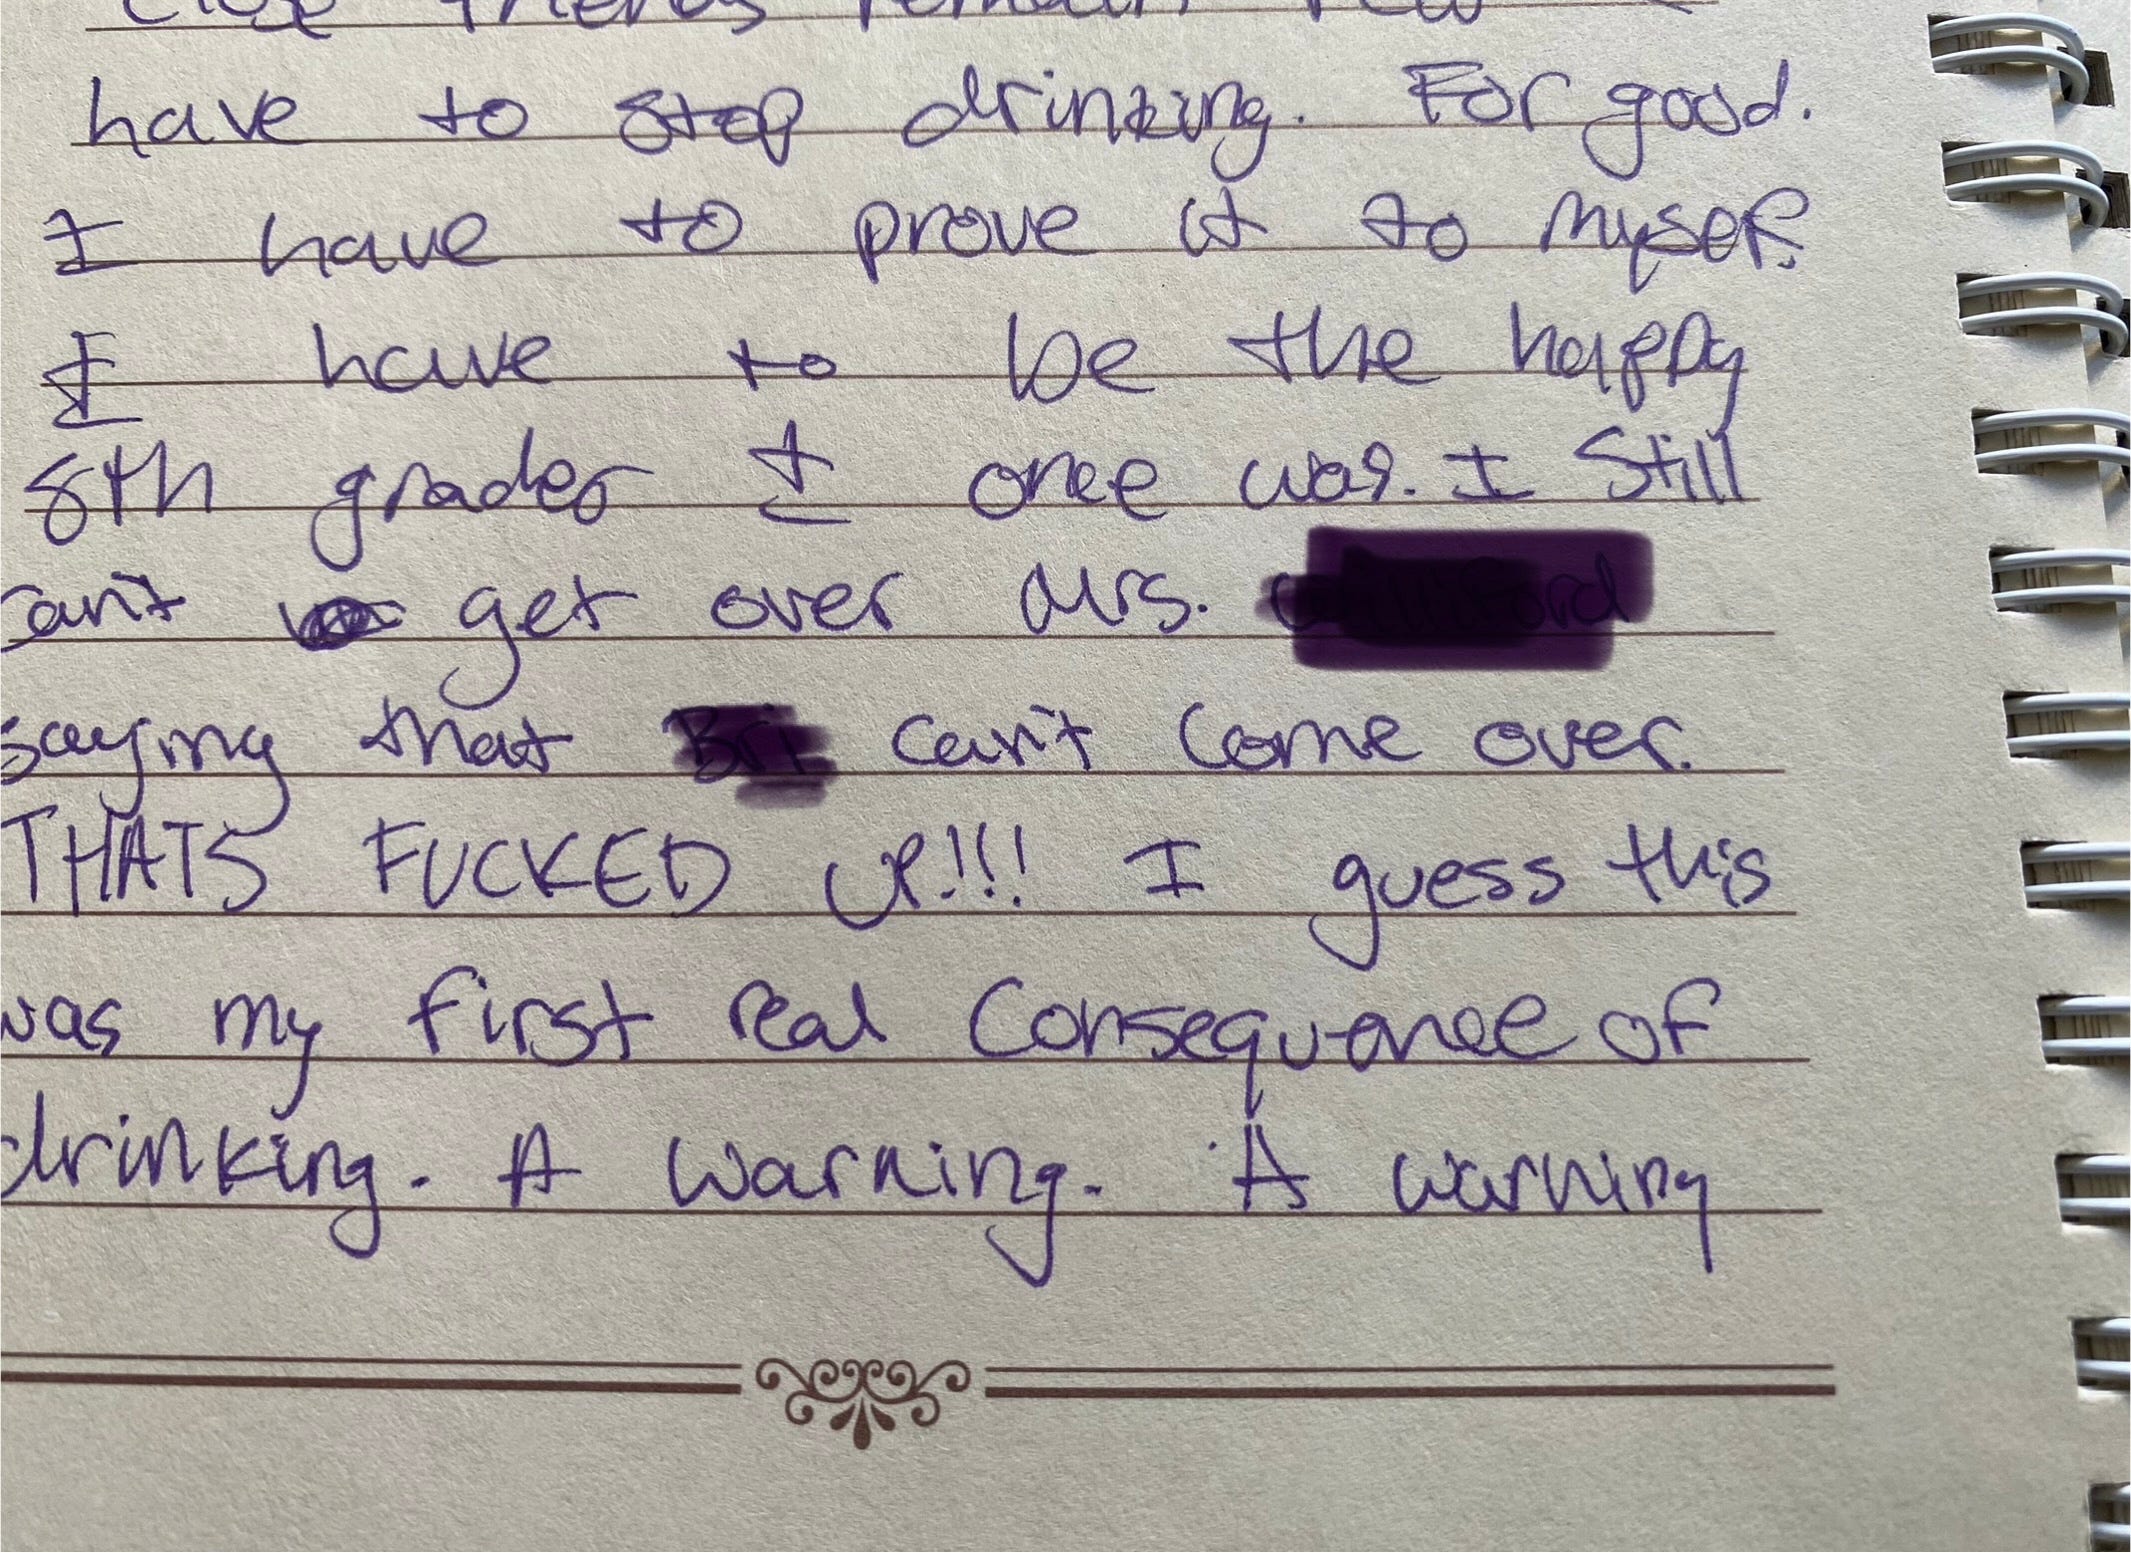 close friends remain
have to stop drinking. For good.
I have to prove it to myself.
I have to be the happy
8th grader I once was. I Still
can't get over Mrs.
saying that can't come over.
THATS FUCKED UP!!! I guess this
was my first real Consequence of
drinking. A warning. A warning